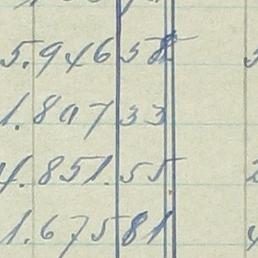 5.946 58
1.897 33
4.851.55
1.675 81